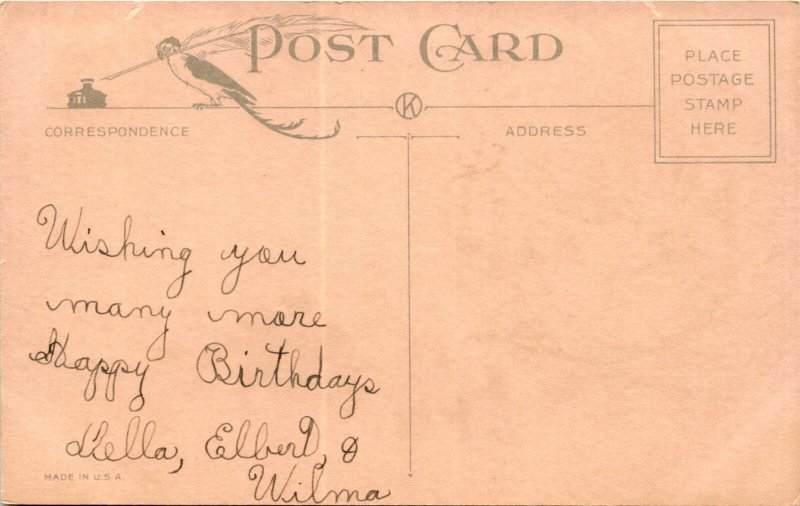 POST CARD
PLACE
POSTAGE
STAMP
HERE
K
CORRESPONDENCE
ADDRESS
Wishing you
many more
Happy Birthdays
Elbert, &
Wilma
MADE IN U.S.A.